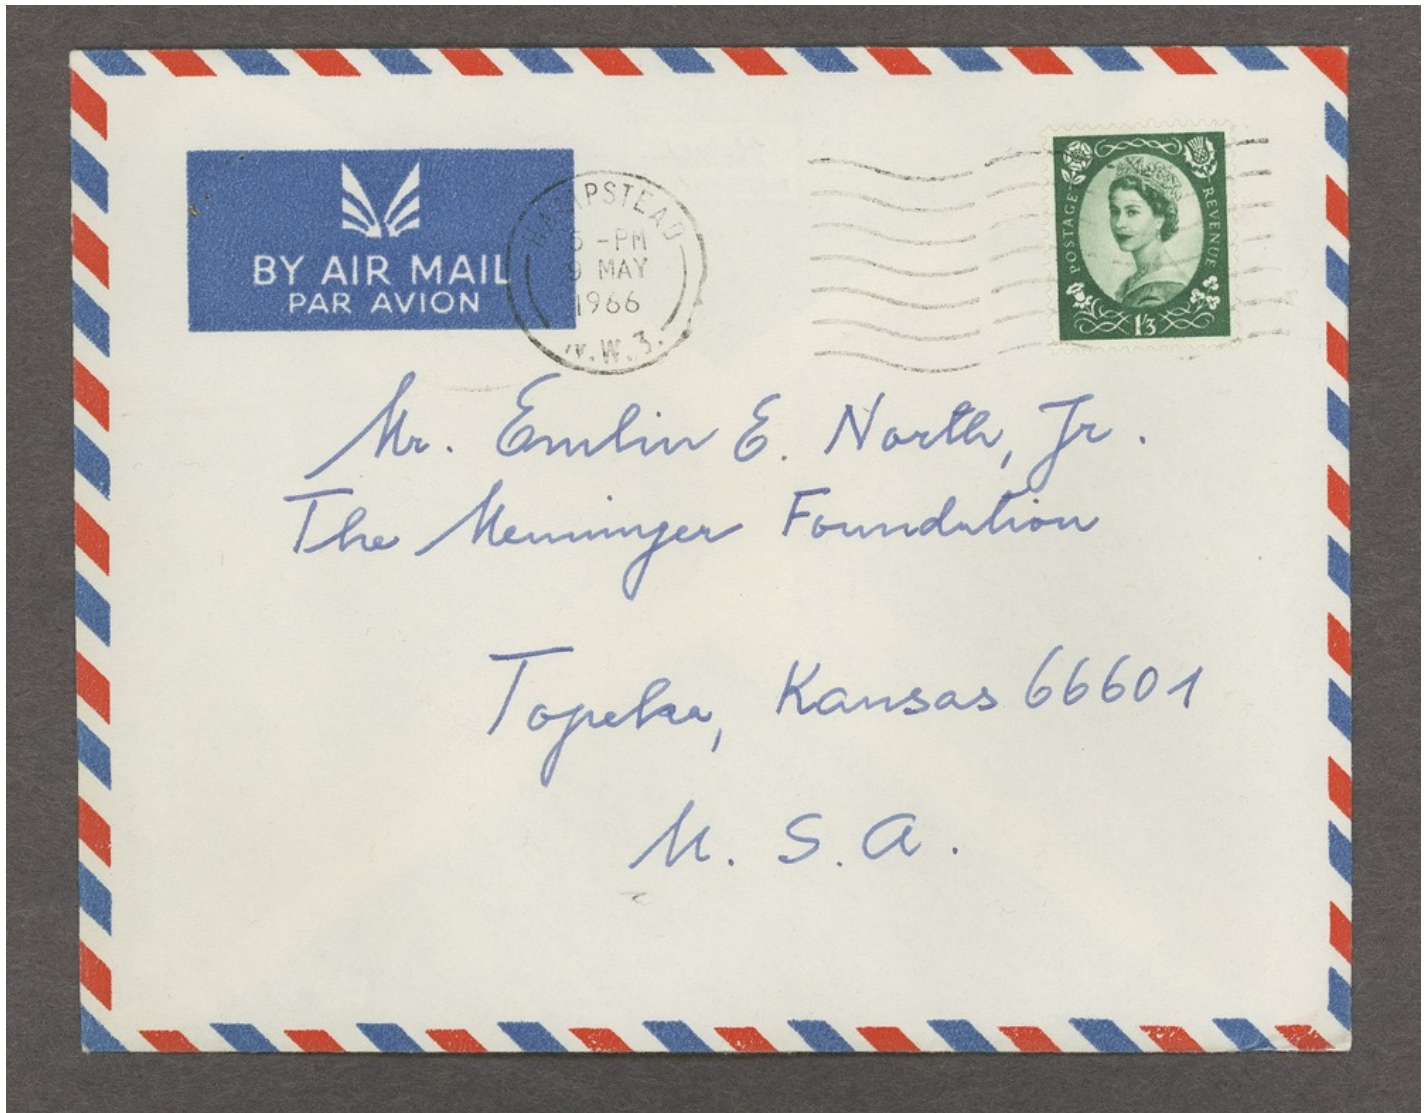 BY AIR MAIL
PAR AVION
HAMPSTEAD
5 -PM
9 MAY
1966
N.W.3.
POSTAGE
REVENUE
1/3
Mr. Emlin E. North, Jr.
The Menninger Foundation
Topeka, Kansas 66601
U. S. A.